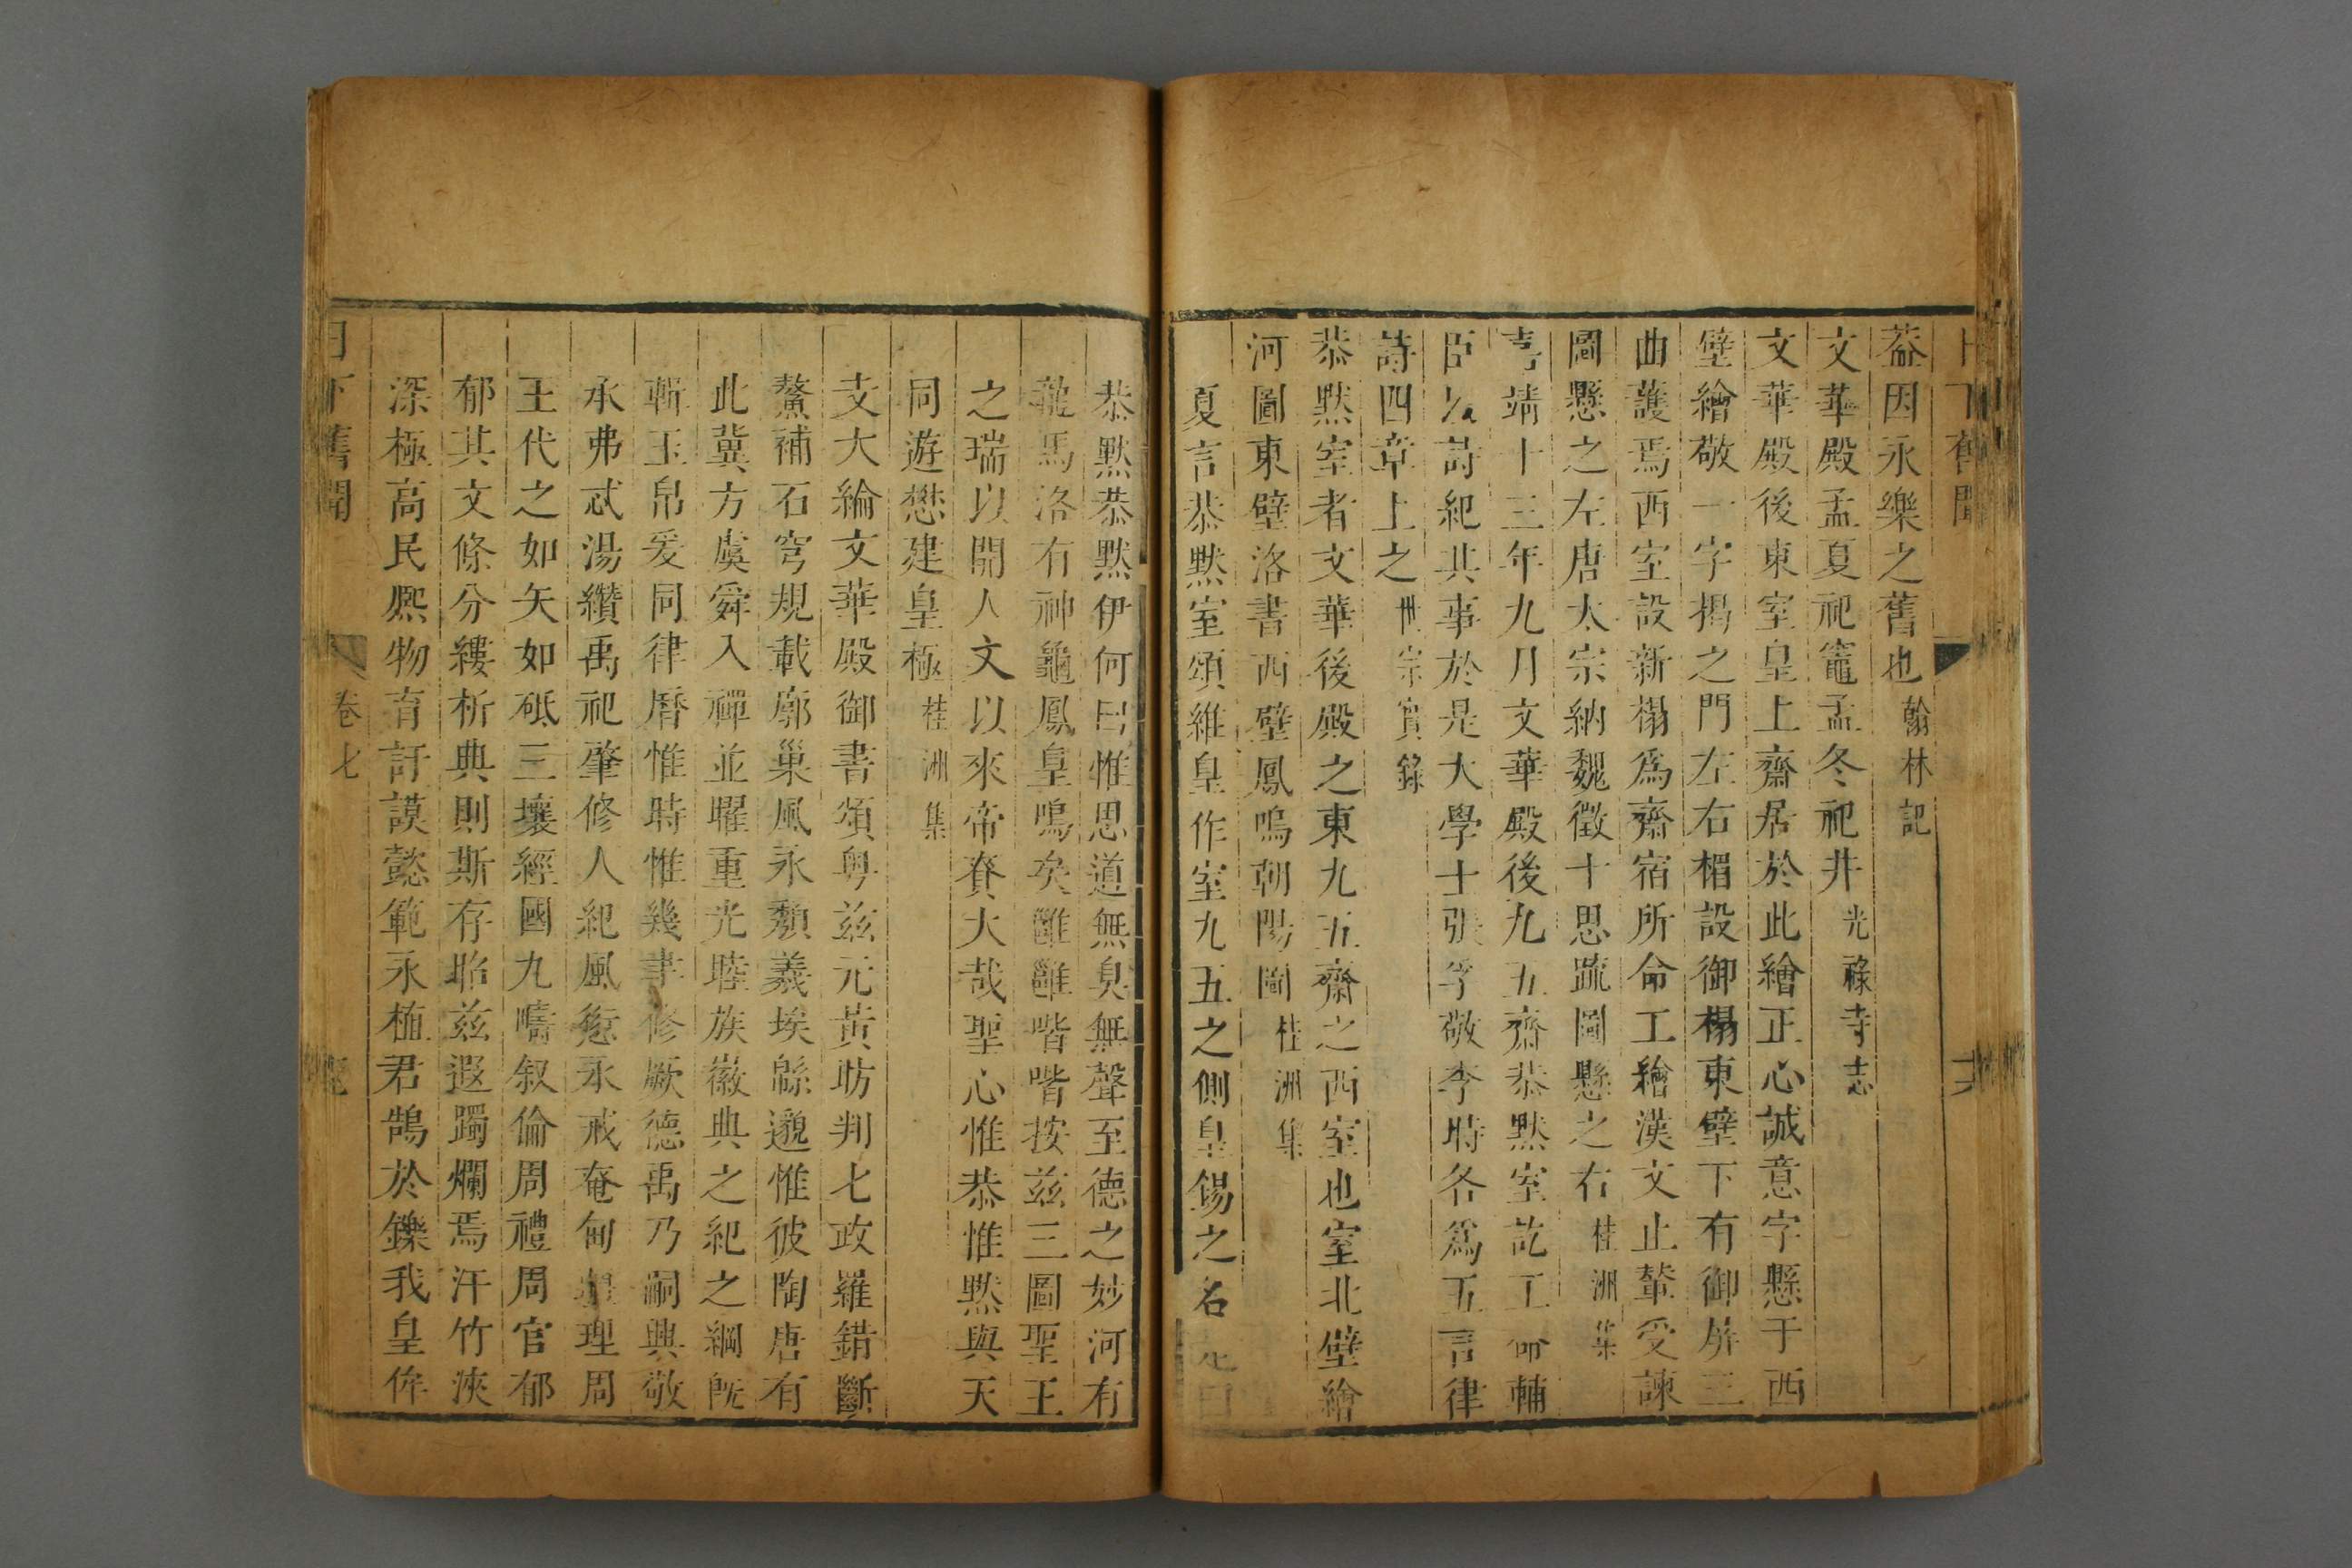 日下舊聞
葢因永樂之舊也翰林記
文華殿孟夏祀竈孟冬祀井光祿寺志
文華殿後東室皇上齋居於此繪正心誠意字懸于西
壁繪敬一字揭之門左右楣設御榻東壁下有御屏三
曲護焉西室設新榻爲齋宿所命工繪漢文止輦受諫
圖懸之左唐太宗納魏徵十思疏圖懸之右桂洲集
嘉靖十三年九月文華殿後九五齋恭默室訖工命輔
臣以詩紀其事於是大學士張孚敬李時各爲五言律
詩四章上之世宗實錄
恭默室者文華後殿之東九五齋之西室也室北壁繪
河圖東壁洛書西壁鳳鳴朝陽圖桂洲集
夏言恭默室頌維皇作室九五之側皇錫之名
恭默恭默伊何曰惟思道無臭無聲至德之妙河有
龍馬洛有神龜鳳皇鳴矣雝雝喈喈按兹三圖聖王
之瑞以開人文以來帝賚大哉聖心惟恭惟默與天
同遊懋建皇極桂洲集
支大綸文華殿御書頌粤兹元黃昉判七政羅錯斷
鰲補石穹規載廓巢風永頽羲埃緜邈惟彼陶唐有
此冀方虞舜入禪並曜重光睦族徽典之紀之綱旣
輯玉帛爰同律曆惟時惟幾聿修厥德禹乃嗣興敬
承弗忒湯纘禹祀肇修人紀風愆永戒奄甸疆理周
王代之如矢如砥三壤經國九疇叙倫周禮周官郁
郁其文條分縷析典則斯存昭兹遐躅爛焉汗竹浹
深極高民熙物育訏謨懿範永植君鵠於鑠我皇侔
日下舊聞 卷七